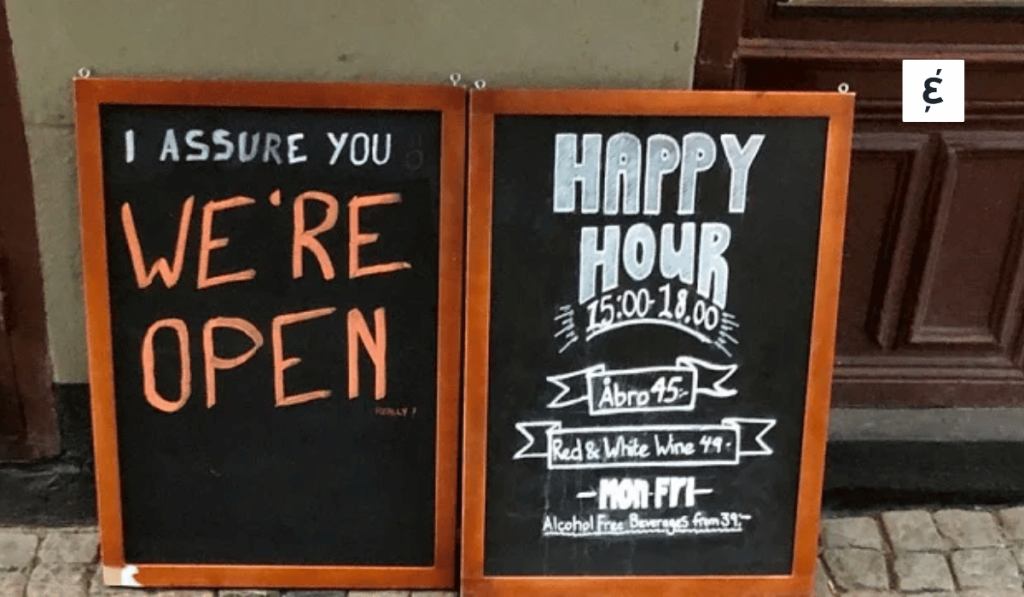 I ASSURE YOU
WE'RE
OPEN
REALLY!
HAPPY
HOUR
15:00-18.00
Åbro 45:-
Red & White Wine 49:-
-MON-FRI-
Alcohol Free Beverages from 39:-
&